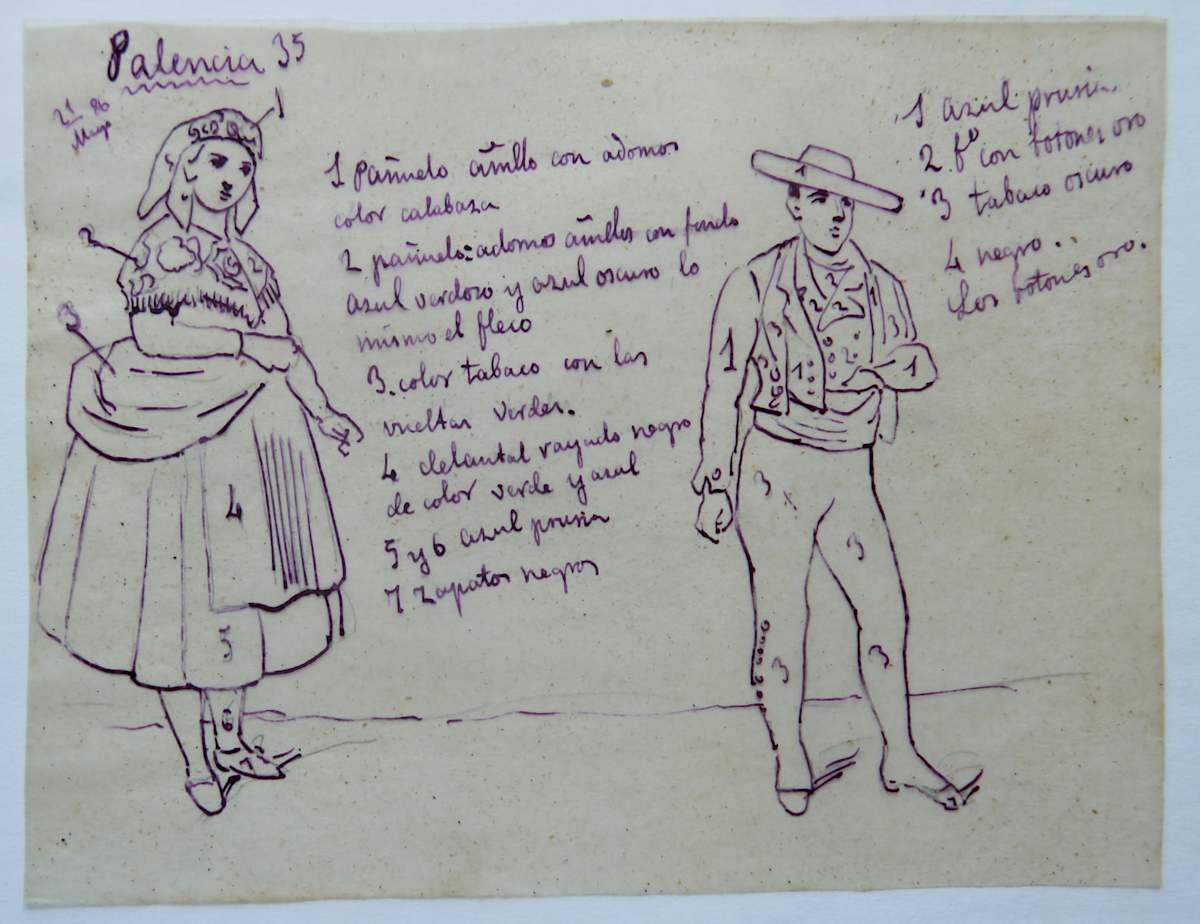 Palencia 35
21 86
Mayo
1
1 Pañuelo añillo con adornos
color calabaza
2 pañuelo: adornos añillos con fondo
azul verdoso y azul oscuro lo
mismo el fleco
3. color tabaco con las
vueltas verdes.
4 delantal rayado negro
de color verde y azul
5 y 6 azul prusia
7 Zapatos negros
2
3
4
5
6
1 azul prusia
2. fdo con botones oro
3 tabaco oscuro
4 negro..
Los botones oro.
1
2
2
3
3
1
1
2
1
3
3
3
3